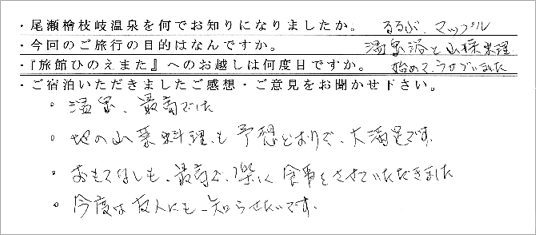 ・尾瀬檜枝岐温泉を何でお知りになりましたか。 るるぶ、マップル
・今回のご旅行の目的はなんですか。 温泉浴と山菜料理
・『旅館ひのえまた』へのお越しは何度目ですか。 始めてうかがいました
・ご宿泊いただきましたご感想・ご意見をお聞かせ下さい。
。温泉、最高でした
。地の山菜料理も予想どおりで、大満足です。
。おもてなしも、最高で、楽しく食事をさせていただきました
。今度は友人にも知らせたいです。